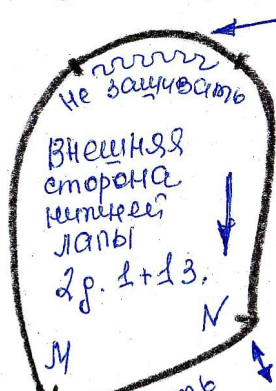 не зашивать
Внешняя
сторона
нижней
лапы
2 д. 1+1 з.
N
M